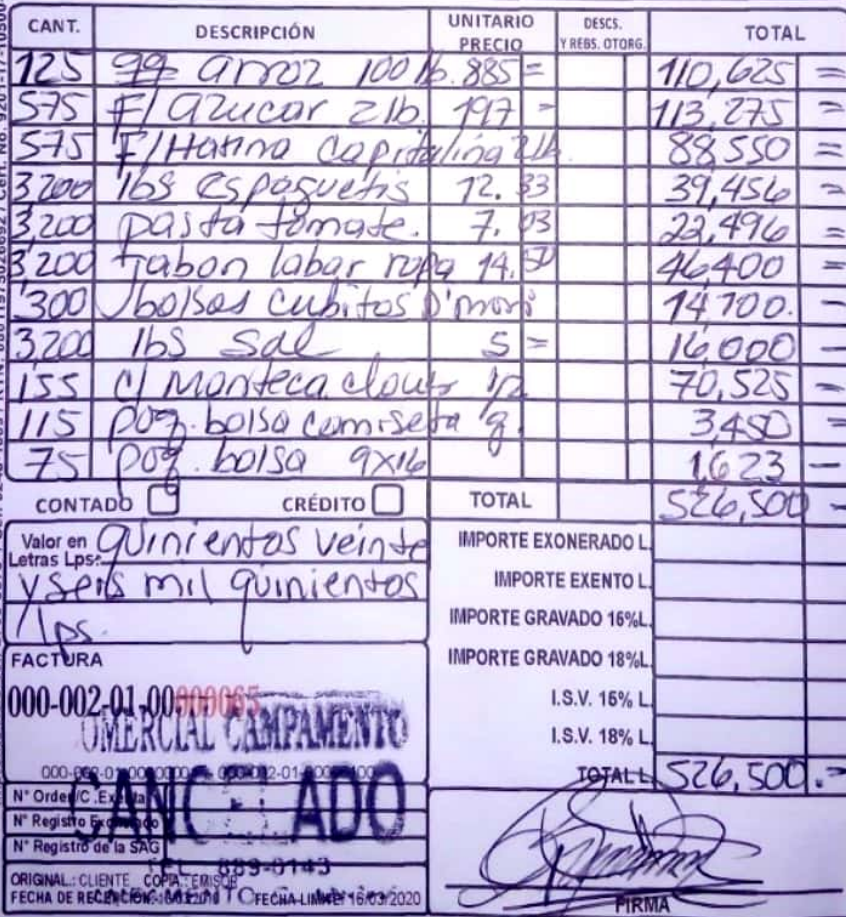 CANT. DESCRIPCIÓN UNITARIO PRECIO DESCS. Y REBS. OTORG. TOTAL
125 qq arroz 100 lb. 885 = 110,625 =
575 F/ azucar 2lb. 197 = 113,275 =
575 F/Harina Capitalina 2lb. 88,550 =
3,200 lbs espaguetis 12.33 39,456 =
3,200 pasta tomate. 7.03 22,496 =
3,200 jabon labar ropa 14.50 46,400 =
300 bolsas cubitos 14,700. -
3,200 lbs sal 5 = 16,000 -
155 c/ Manteca 70,525 =
115 paq. bolsa camiseta g. 3,450 =
75 paq. bolsa 9x16 1,623 -
CONTADO CRÉDITO TOTAL 526,500 -
Valor en Letras Lps: quinientos veinte
y seis mil quinientos
lps.
IMPORTE EXONERADO L.
IMPORTE EXENTO L.
IMPORTE GRAVADO 15%L.
IMPORTE GRAVADO 18%L.
I.S.V. 15% L.
I.S.V. 18% L.
TOTAL L. 526,500.-
FACTURA
000-002-01-00000065
OMERCIAL CAMPAMENTO
CANCELADO
N° Orden/C.Exenta
N° Registro Exonerado
N° Registro de la SAG
889-0143
ORIGINAL: CLIENTE COPIA: EMISOR
FECHA DE RECEPCIÓN: FECHA LIMITE: 16/03/2020
FIRMA